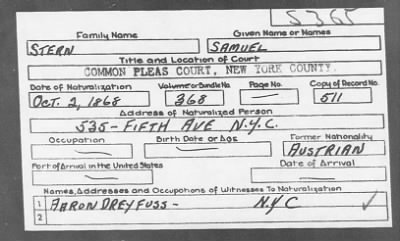 S365
Family Name Given Name or Names
STERN SAMUEL
Title and Location of Court
COMMON PLEAS COURT, NEW YORK COUNTY.
Date of Naturalization Volume or Bundle No. Page No. Copy of Record No.
OCT. 2, 1868 368 — 511
Address of Naturalized Person
535 - FIFTH AVE N.Y.C.
Occupation Birth Date or Age Former Nationality
— — AUSTRIAN
Port of Arrival in the United States Date of Arrival
— —
Names, Addresses and Occupations of Witnesses To Naturalization
1 AARON DREYFUSS - N.Y.C ✓
2